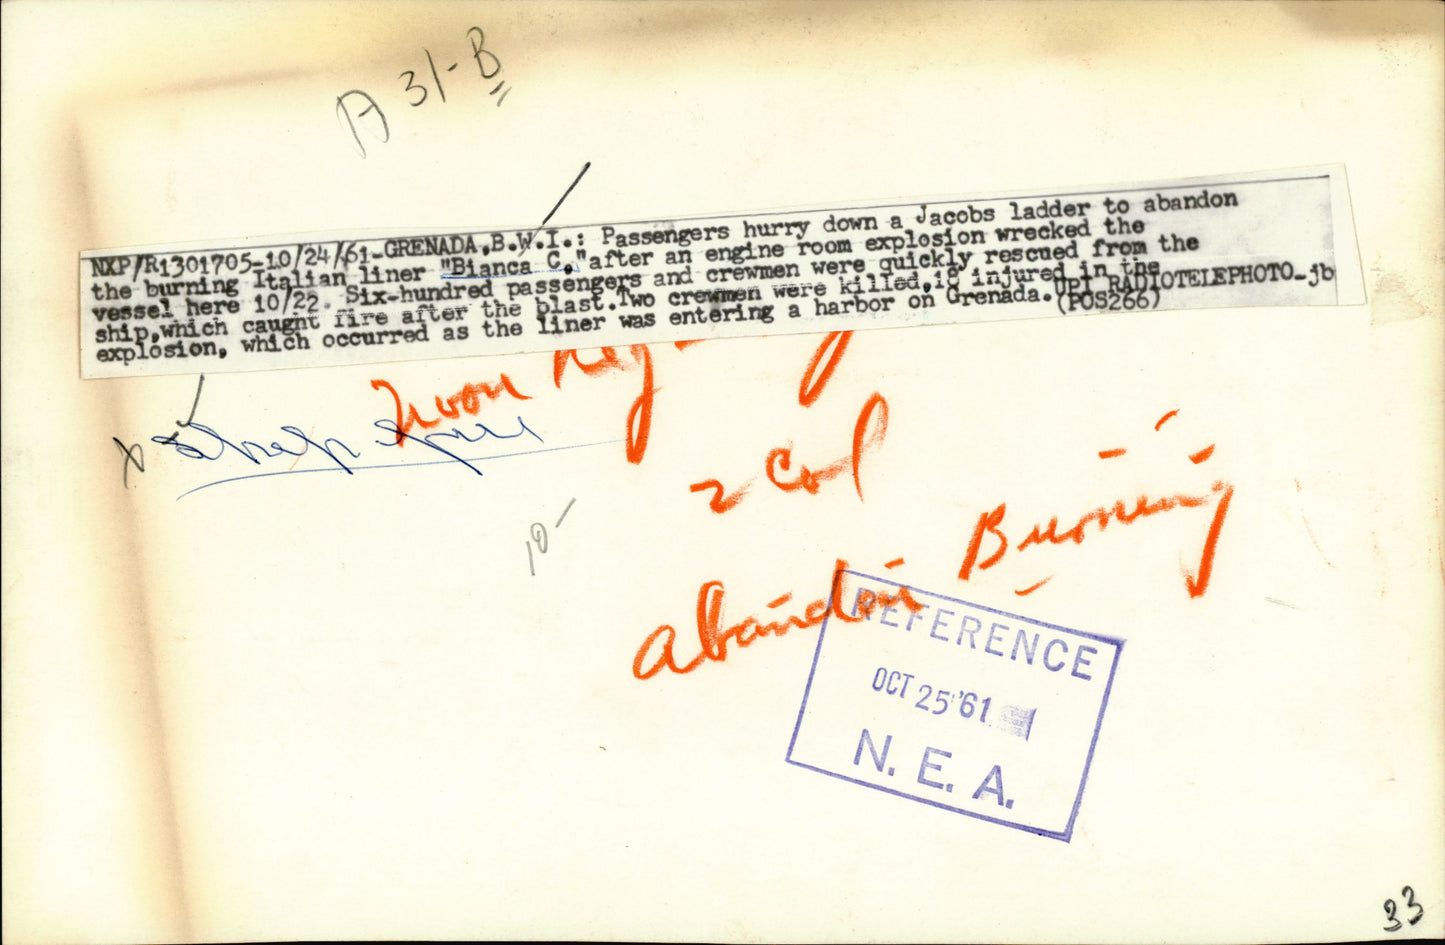 A31-B
NXP/R1301705-10/24/61-GRENADA,B.W.I.: Passengers hurry down a Jacobs ladder to abandon
the burning Italian liner "Bianca C." after an engine room explosion wrecked the
vessel here 10/22. Six-hundred passengers and crewmen were quickly rescued from the
ship,which caught fire after the blast.Two crewmen were killed,18 injured in the
explosion, which occurred as the liner was entering a harbor on Grenada. UPI RADIOTELEPHOTO-jb
(POS266)
noon
2 Col
10-
Burning
abandon
REFERENCE
OCT 25 '61
N. E. A.
33